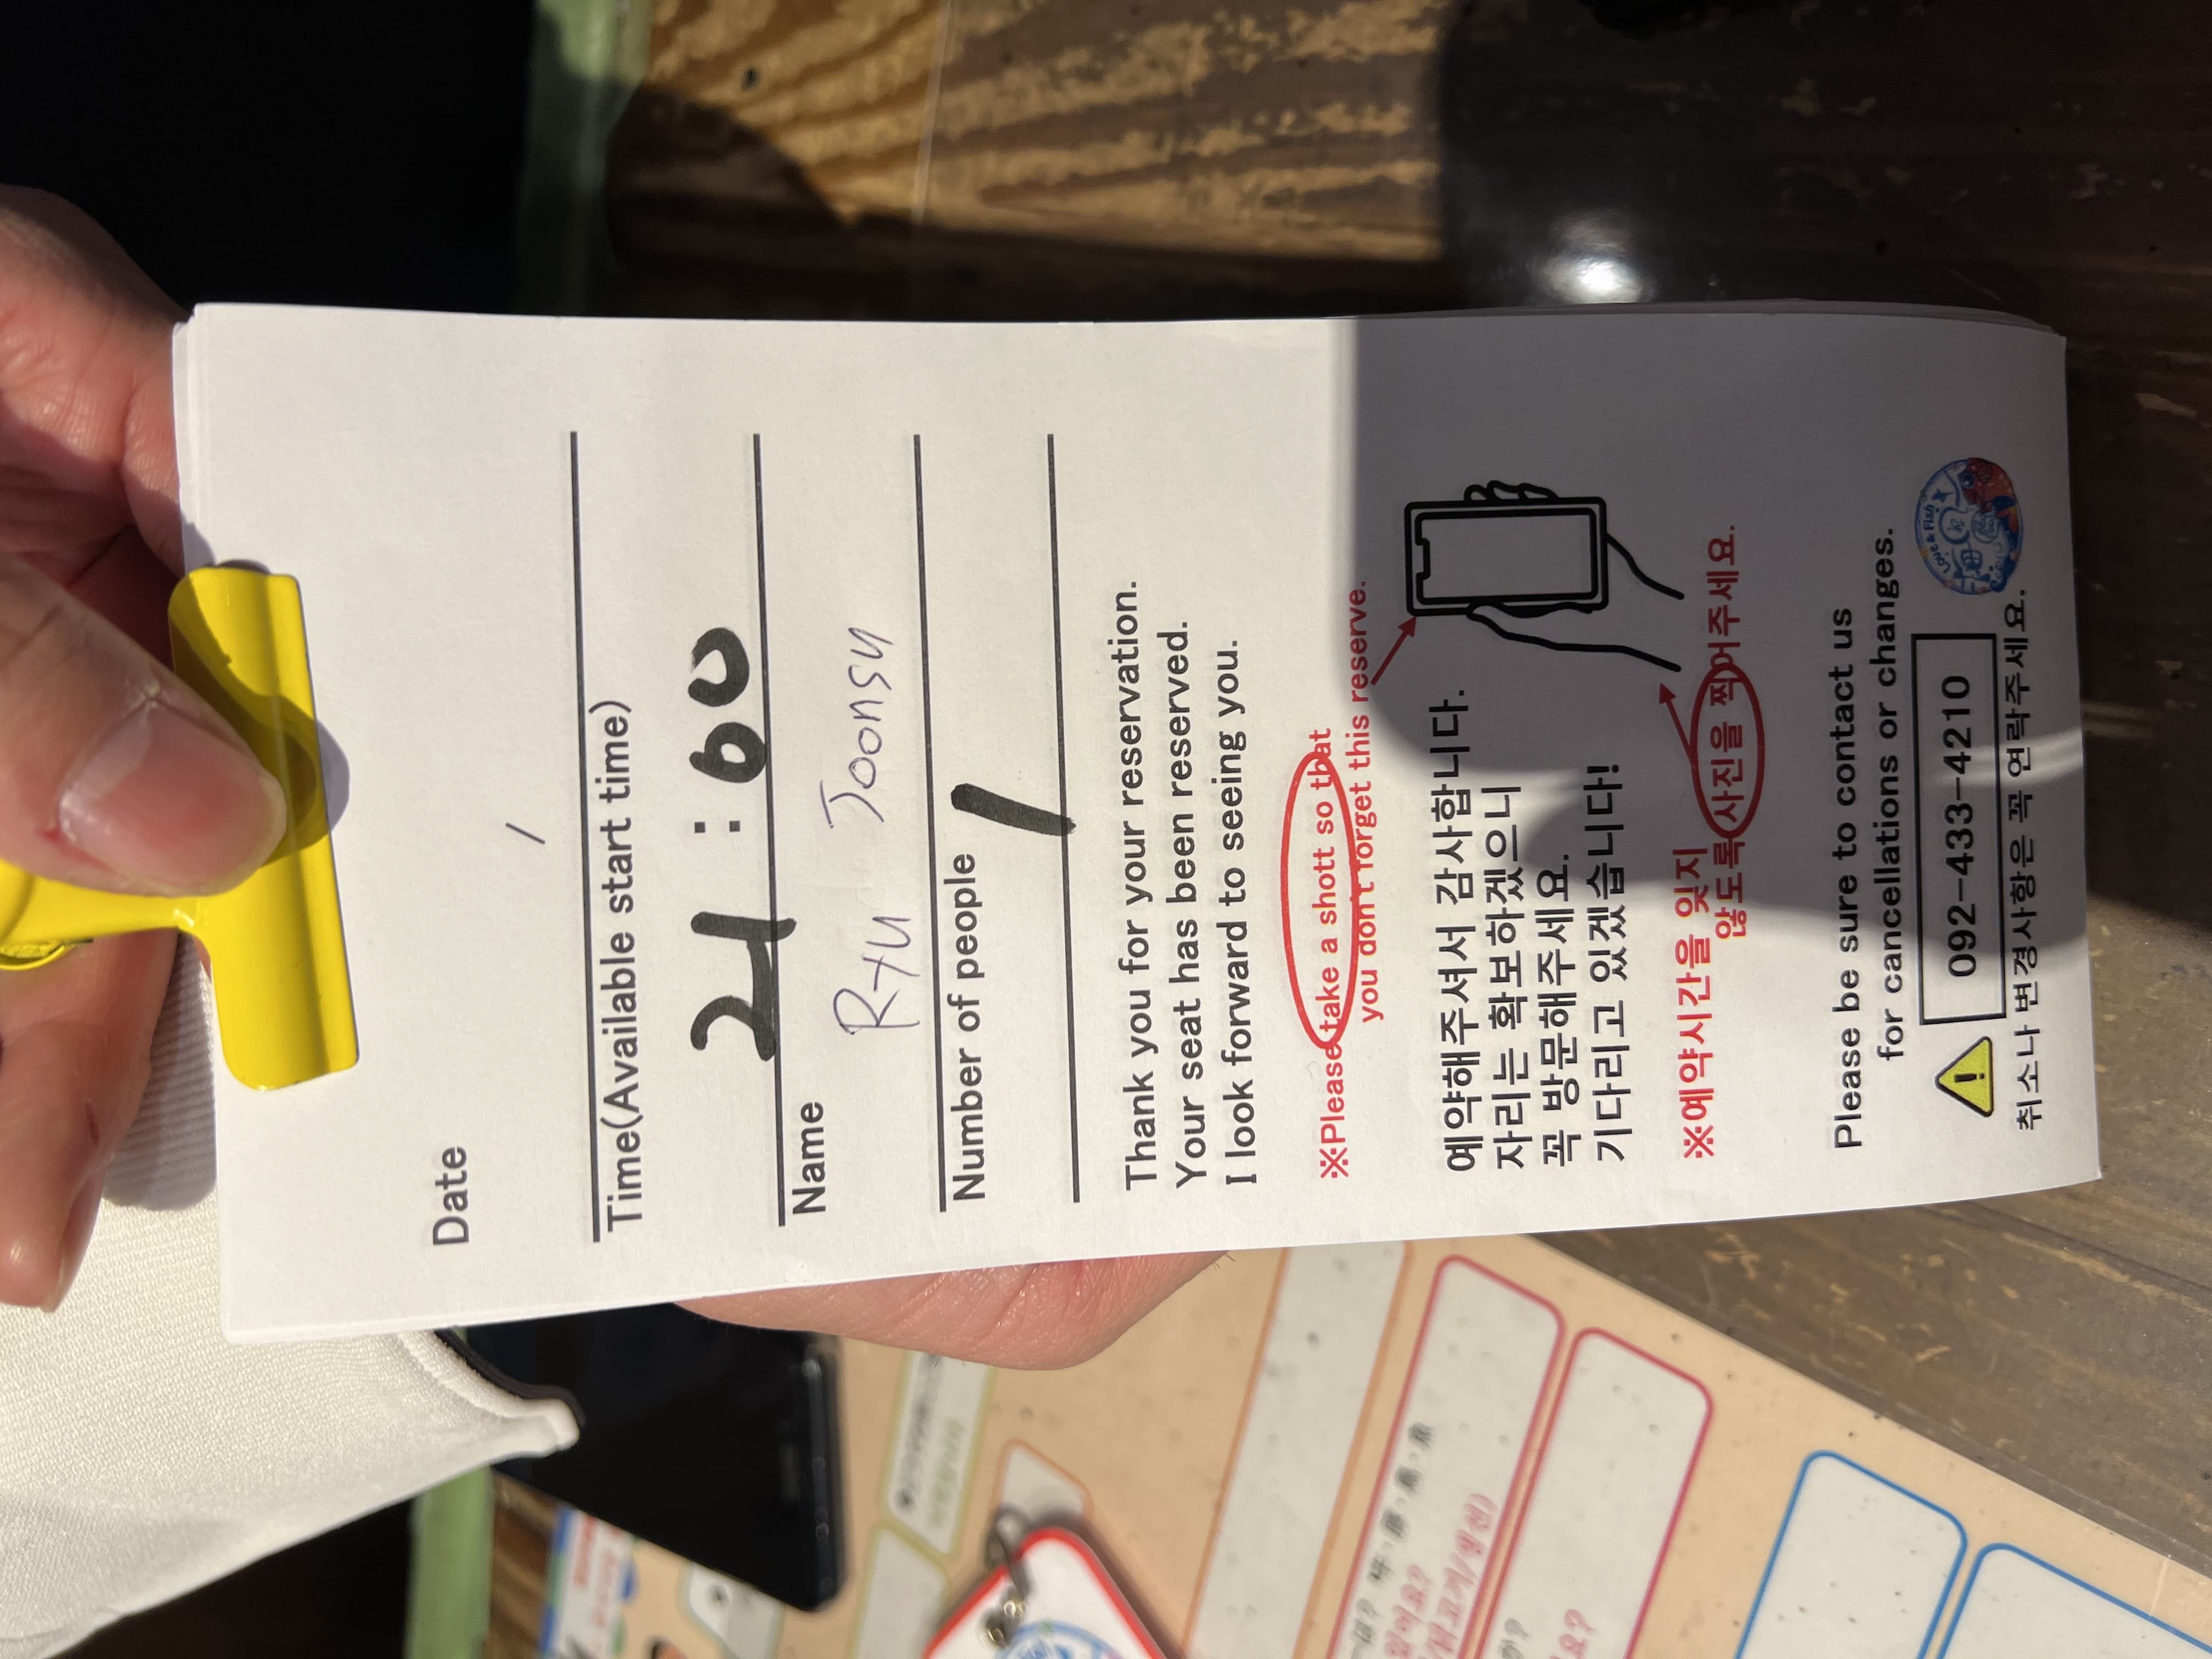 Date
/
Time(Available start time)
21 : 00
Name
Ryu Joonsu
Number of people
1
Thank you for your reservation.
Your seat has been reserved.
I look forward to seeing you.
※Please take a shott so that
you don't forget this reserve.
예약해주셔서 감사합니다.
자리는 확보하겠으니
꼭 방문해주세요.
기다리고 있겠습니다!
※예약시간을 잊지
않도록 사진을 찍어주세요.
Please be sure to contact us
for cancellations or changes.
!
092-433-4210
Love & Fish
취소나 변경사항은 꼭 연락주세요.
있어요?
/닭고기/생선)
か?
요?